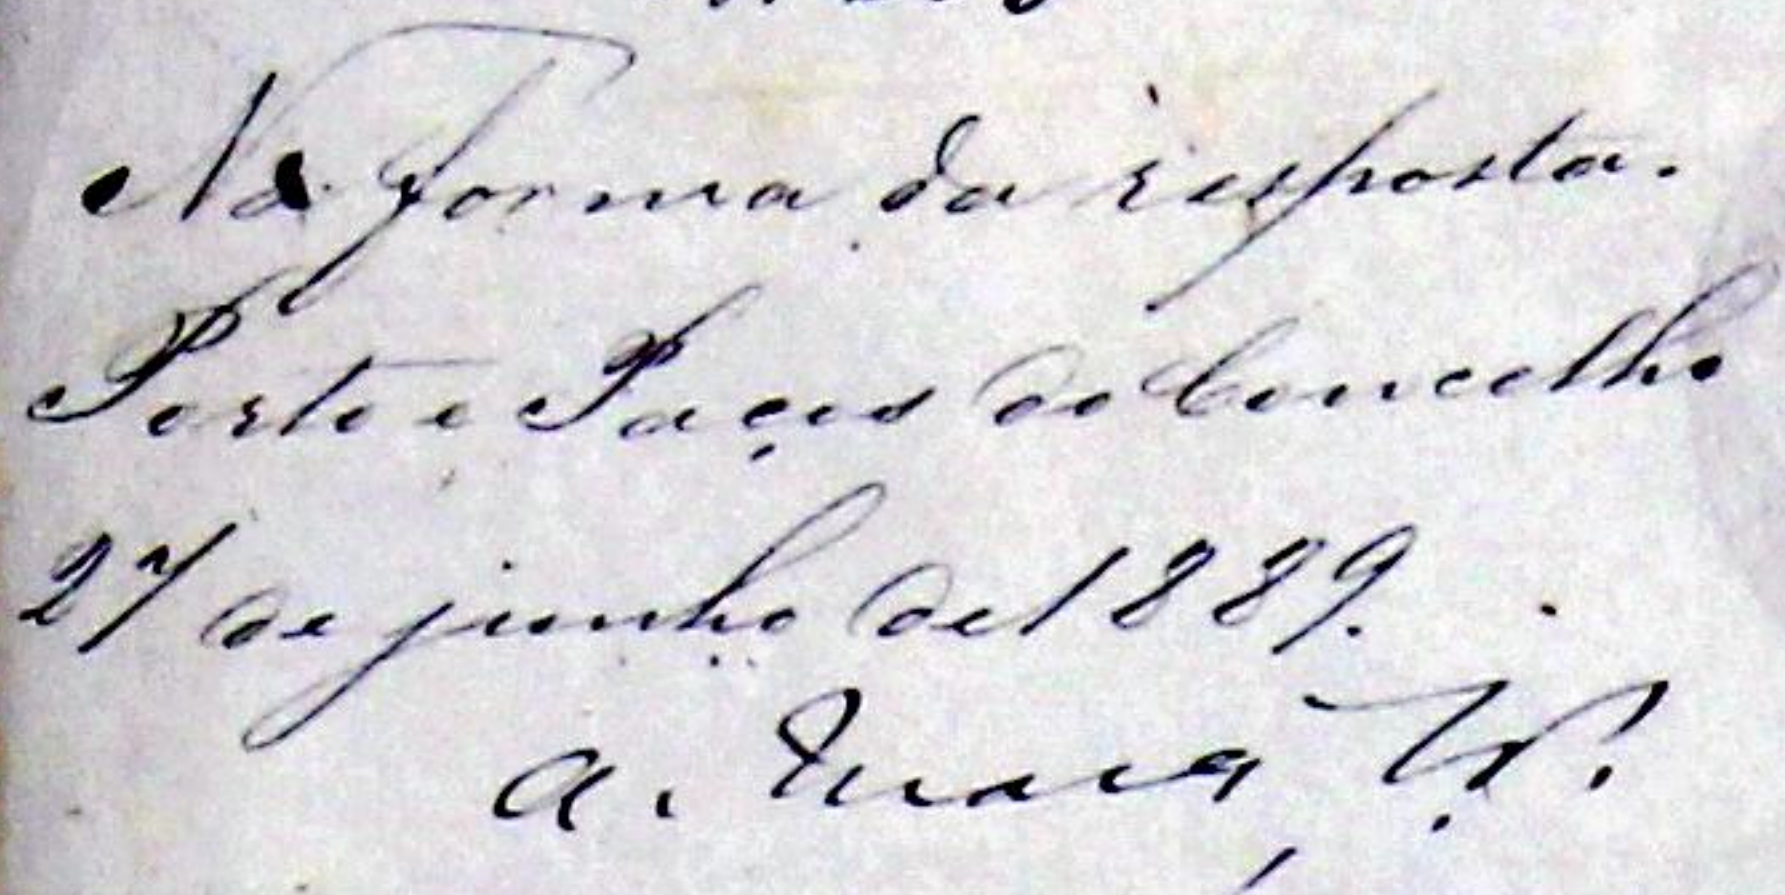 Na forma da resposta.
Porto e Paços do Concelho
27 de junho de 1889.